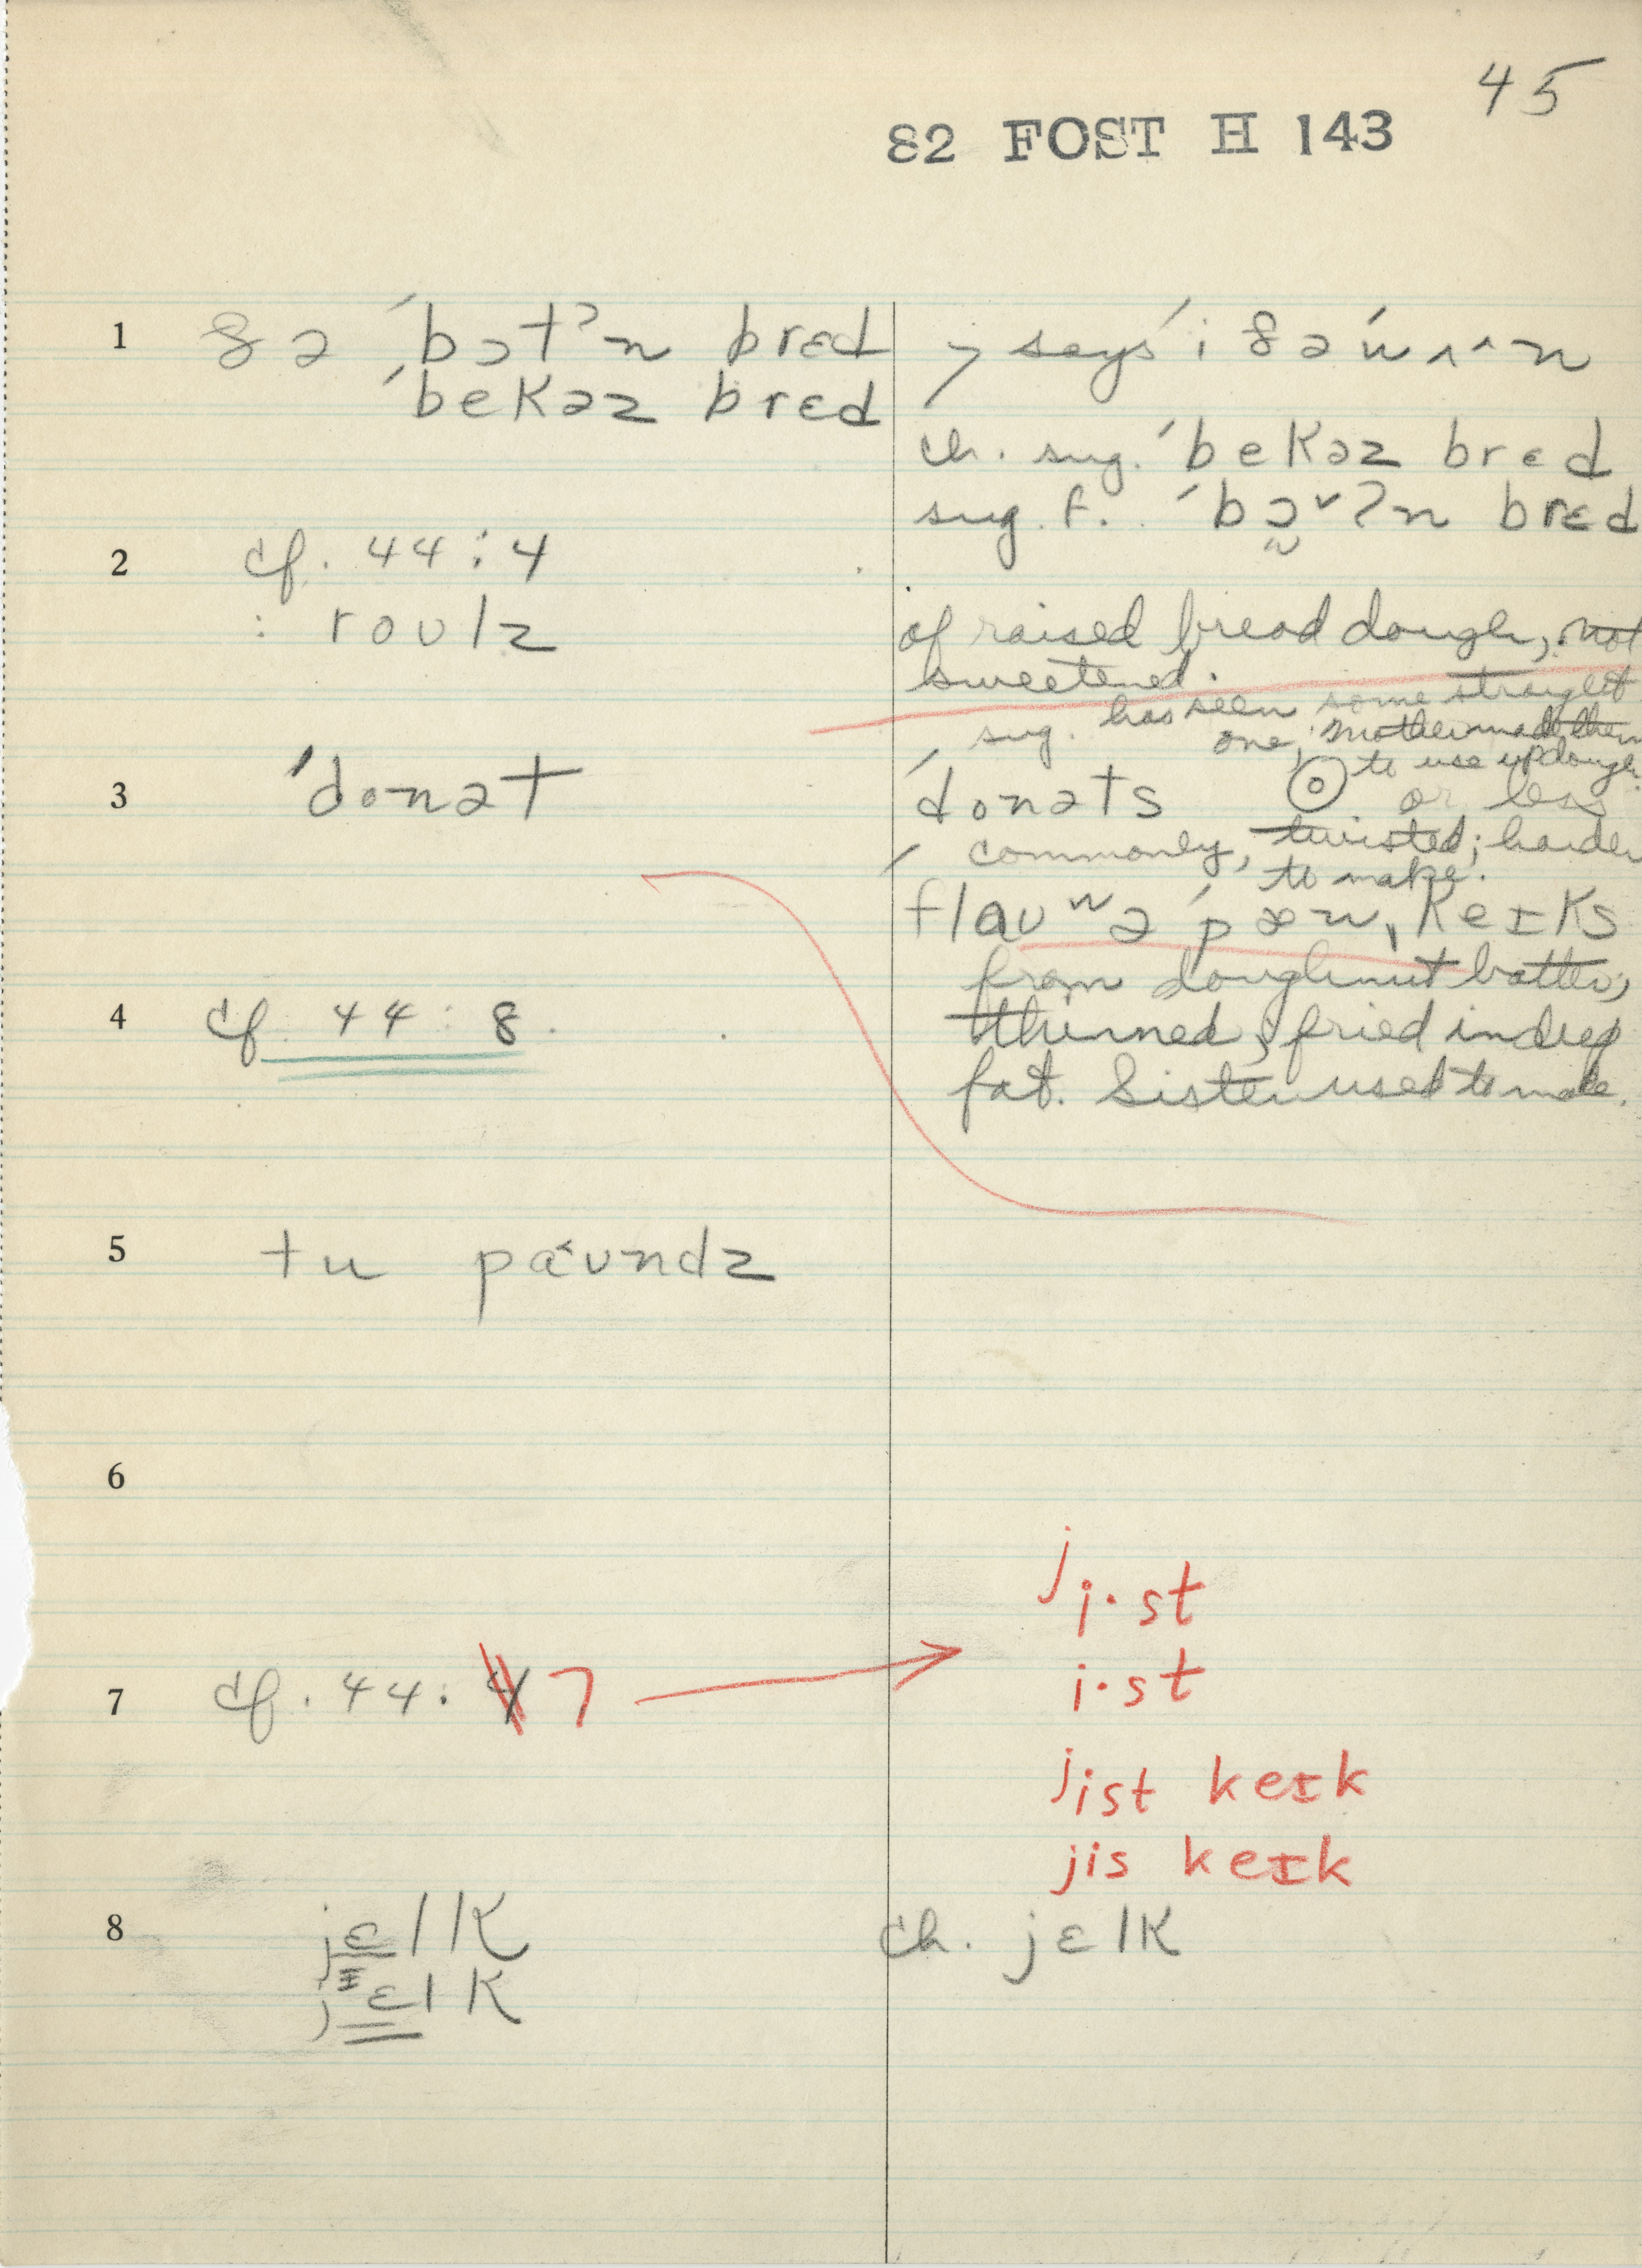 45
82 FOST H 143
1 ðə ˊbɔtˀn brɛd
ˊbekəz brɛd
says ˊiðəˊw
ch. sug. ˊbekəz brɛd
sug. f. ˊbɔ̰ˇʔn brɛd
2 cf. 44:4
: roʊlz
of raised bread dough, not
sweetened.
sug. has seen some straight
one; mother made them
to use up dough
3 ˊdonət
ˊdonəts or less
commonly, twisted; harder
to make.
flaʊʷəˊpæn ˌkeɪks
from doughnut batter,
thinned, fried in deep
fat. Sister used to make.
4 cf. 44:8.
5 tu pa˂ʊndz
6
ji·st
7 cf. 44: 4 7
i·st
jist keɪk
jis keɪk
8 jɛlk
jᶦɛlk
ch. jɛlk